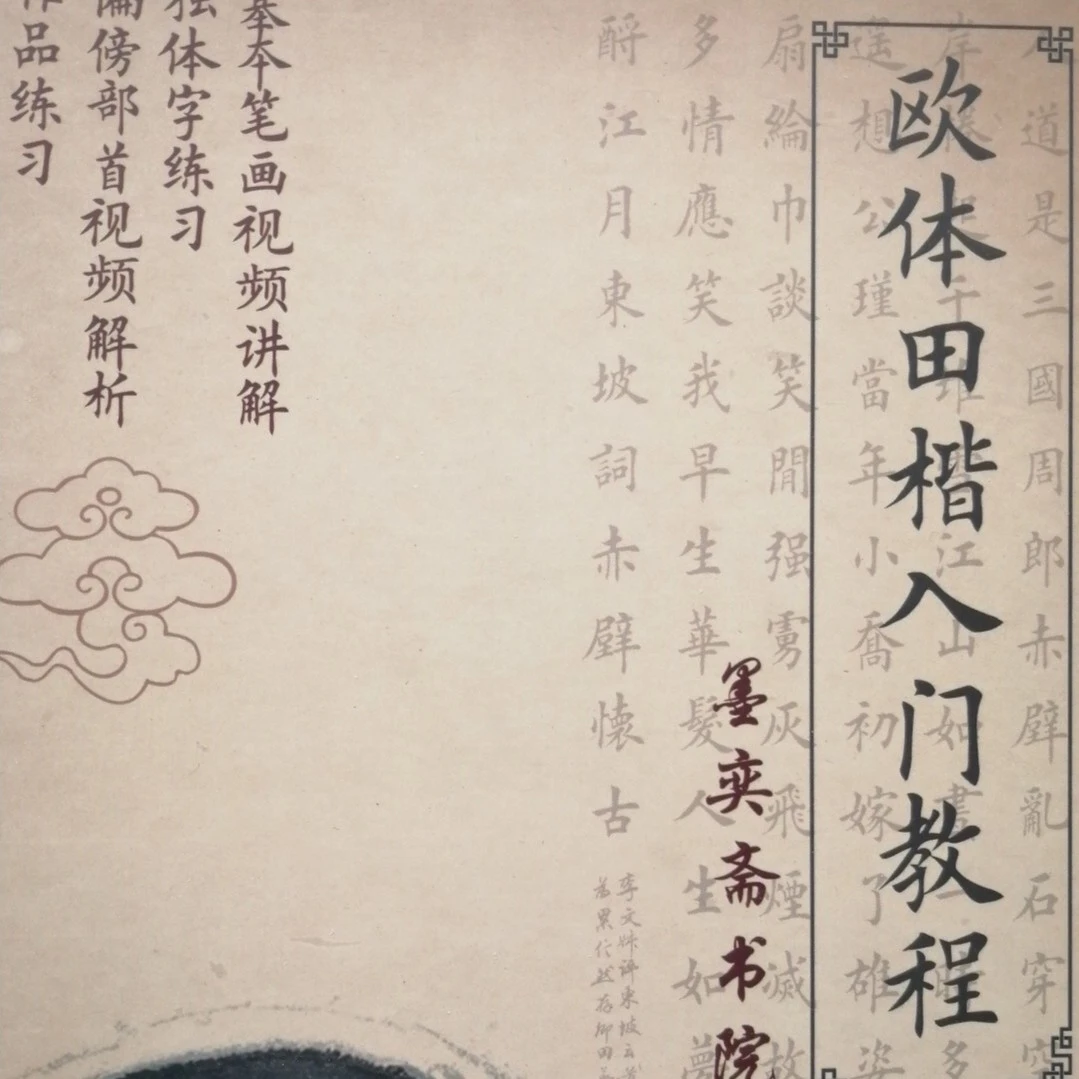 欧体田楷入门教程
墨奕斋书院
道是三國周郎赤壁亂石穿空
岸千堆江山如畫多
遥想公瑾當年小喬初嫁了雄姿
扇綸巾談笑間强虜灰飛煙滅故
多情應笑我早生華髮人生如夢
酹江月東坡詞赤壁懷古
基本笔画视频讲解
独体字练习
偏傍部首视频解析
作品练习